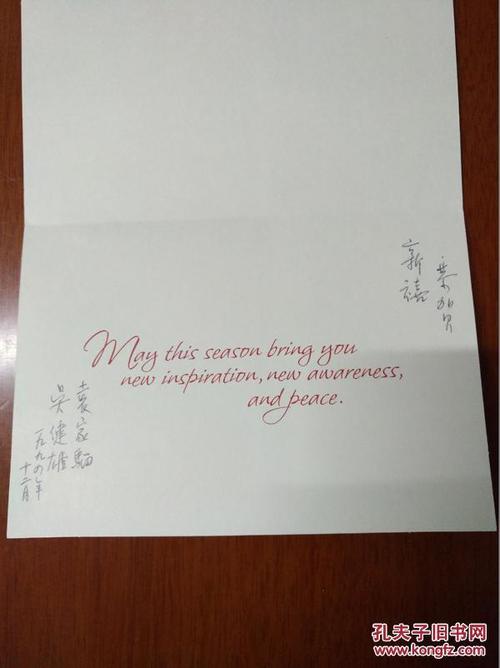 恭贺
新禧
May this season bring you
new inspiration, new awareness,
and peace.
袁家騮
吳健雄
一九九〇年
十二月
孔夫子旧书网
www.kongfz.com